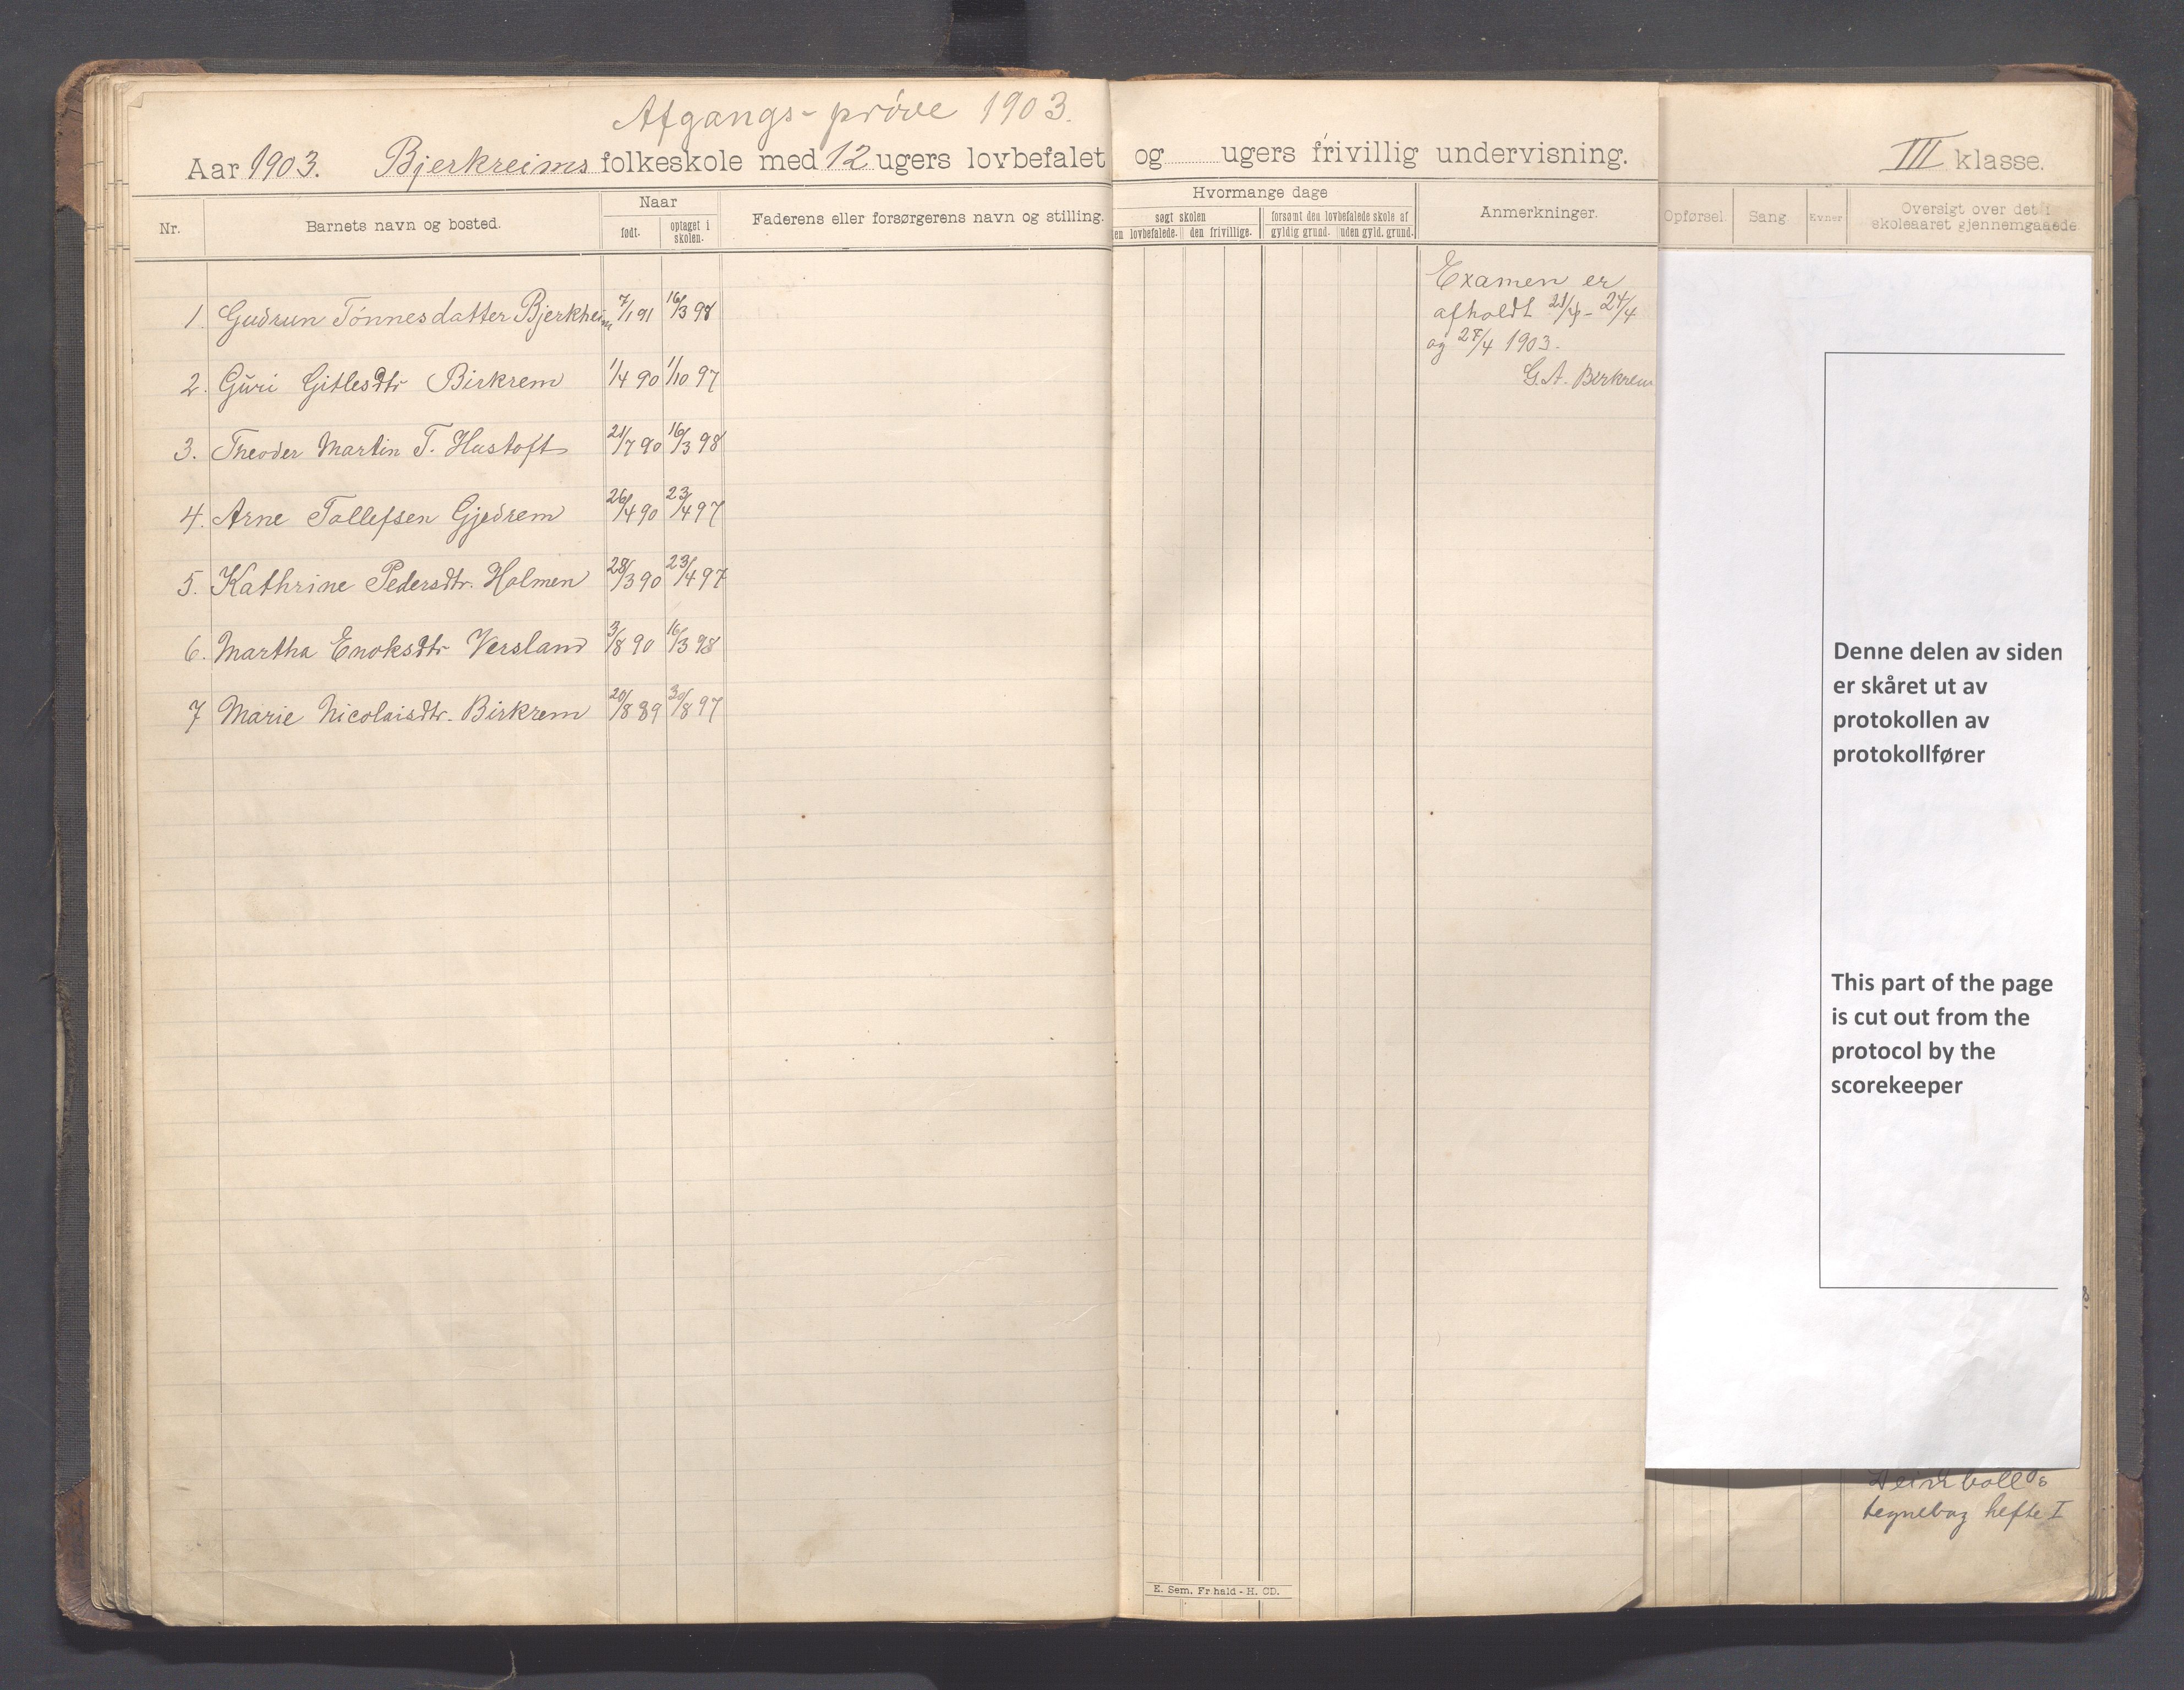 Afgangs-prøve 1903.
Aar 1903. Bjerkreims folkeskole med 12 ugers lovbefalet og ugers frivillig undervisning. III klasse.
Nr. Barnets navn og bosted. Naar født. optaget i skolen. Faderens eller forsørgerens navn og stilling. Hvormange dage søgt skolen en lovbefalede. den frivillige. forsømt den lovbefalede skole af gyldig grund. uden gyld. grund. Anmerkninger. Opførsel Sang Evner Oversigt over det i skoleaaret gjennemgaaede
1. Gudrun Tønnesdatter Bjerkheim 7/1 91 16/3 98
2. Guri Gitlesdtr Birkrem 1/4 90 1/10 97
3. Theoder Martin T. Hustoft 21/7 90 16/3 98
4. Arne Tollefsen Gjedrem 26/4 90 23/4 97
5. Kathrine Pedersdtr. Holmen 28/3 90 23/4 97
6. Martha Enoksdtr Versland 3/8 90 16/3 98
7 Marie Nicolaisdtr. Birkrem 20/8 89 30/8 97
Examen er
afholdt 21/4 - 24/4
og 27/4 1903.
G.A. Birkrem
Denne delen av siden
er skåret ut av
protokollen av
protokollfører
This part of the page
is cut out from the
protocol by the
scorekeeper
tegnebog hefte I
E. Sem. Fr.hald - H. CD.